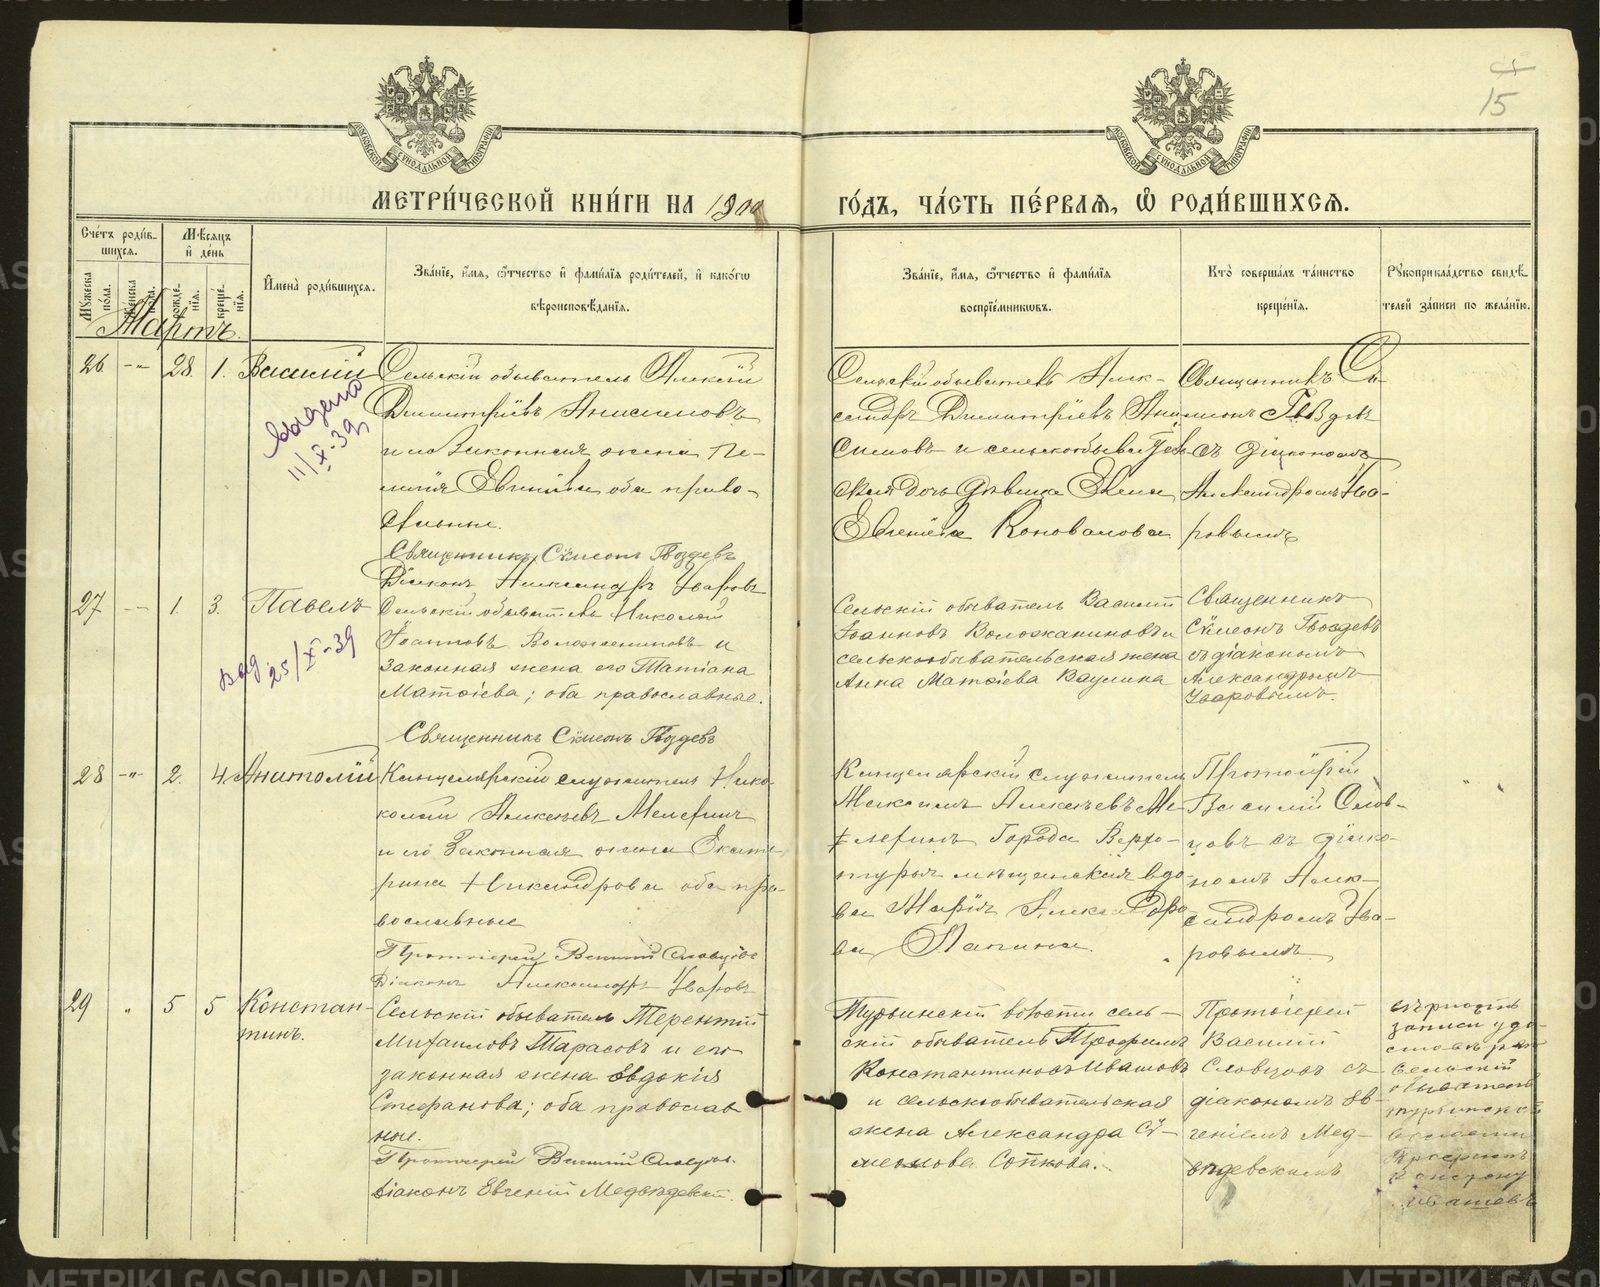 15
МОСКОВСКОЙ СѴНОДАЛЬНОЙ ТИПОГРАФІИ
МОСКОВСКОЙ СѴНОДАЛЬНОЙ ТИПОГРАФІИ
МЕТРИ́ЧЕСКОЙ КНИ́ГИ НА 1900
ГО́ДЪ, ЧА́СТЬ ПЕ́РВАѦ, Ѡ҆ РОДИ́ВШИХСѦ.
Сче́тъ роди́в-
шихсѧ.
Мѣ́сѧцъ
и҆ де́нь
Мꙋ́жеска по́ла.
Же́нска по́ла.
рожде́-нїѧ.
креще́-нїѧ.
И҆мена̀ роди́вшихсѧ.
Зва́нїе, и҆́мѧ, ѻ҆́тчество и҆ фами́лїѧ роди́телей, и҆ како́гѡ
вѣроисповѣ́данїѧ.
Зва́нїе, и҆́мѧ, ѻ҆́тчество и҆ фами́лїѧ
воспрїе́мникѡвъ.
Кто̀ соверша́лъ та́инство
креще́нїѧ.
Рꙋкоприкла́дство свидѣ́-
телей за́писи по жела́нїю.
Мартъ
26 -"- 28. 1. Василій
Сельскій обыватель Алексій
Димитріевъ Анисимовъ
и его Законная жена Пе-
лагія Евгеніева оба право-
славные.
Священникъ Сѵмеонъ Гвоздевъ
Діаконъ Александръ Уваровъ
Сельскій обыватель Алек-
сандръ Димитріевъ Ани-
симовъ и сельскообыватель-
ская дочь дѣвица Елена
Евгеніева Коновалова
Священникъ Сѵ-
меонъ Гвоздевъ
съ діакономъ
Александромъ Ува-
ровымъ
выдано
11/X-39
27 -"- 1. 3. Павелъ
Сельскій обыватель Николай
Іоанновъ Воложениновъ и
законная жена его Татіана
Матѳіева; оба православные.
Священникъ Сѵмеонъ Гвоздевъ
Сельскій обыватель Василій
Іоанновъ Воложаниновъ и
сельскообывательская жена
Анна Матѳіева Ваулина
Священникъ
Сѵмеонъ Гвоздевъ
съ діакономъ
Александромъ
Уваровымъ.
выд. 25/X-39
28 -"- 2. 4. Анатолій
Канцелярскій служитель Нико-
лай Алексѣевъ
и его Законная жена Екате-
рина Никандрова оба пра-
вославные
Протоіерей Василій Словцовъ
Діаконъ Александръ Уваровъ
Канцелярскій служитель
Максимъ Алексѣевъ
Города Верхо-
турья мѣщанская вдо-
ва Марія Александро-
ва Лапина.
Протоіерей
Василій Слов-
цовъ съ діако-
номъ Алек-
сандромъ Ува-
ровымъ
29 " 5 5 Констан-
тинъ.
Сельскій обыватель Терентій
Михаиловъ Тарасовъ и его
законная жена Евдокія
Стефанова; оба православ
ные.
Протоіерей Василій Словцовъ.
Діаконъ Евгеній Медвѣдевскій.
Турьинскій волости сель-
скій обыватель Трофимъ
Константиновъ Ивашовъ
и сельскообывательская
жена Александра Сѵ-
меонова Сопкова.
Протоіерей
Василій
Словцовъ съ
діакономъ Ев-
геніемъ Мед-
вѣдевскимъ
записи удо-
сельскій
обыватель
волости